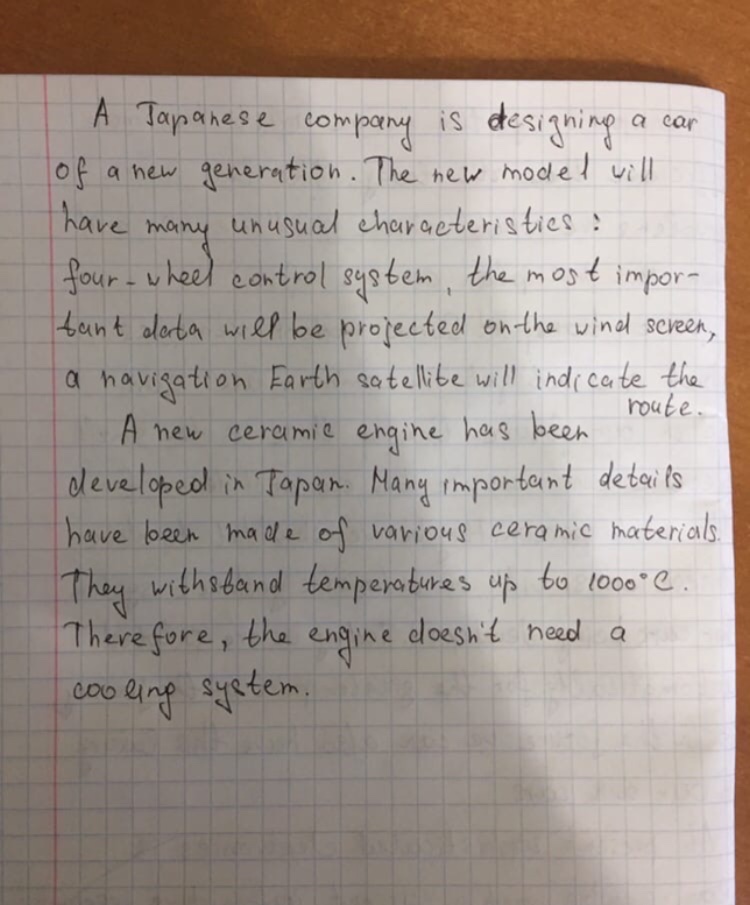 A Japanese company is designing a car
of a new generation. The new model will
have many unusual characteristics:
four-wheel control system, the most impor-
tant data will be projected on the wind screen,
a navigation Earth satellite will indicate the
route.
A new ceramic engine has been
developed in Japan. Many important details
have been made of various ceramic materials.
They withstand temperatures up to 1000°C.
Therefore, the engine doesn't need a
cooling system.